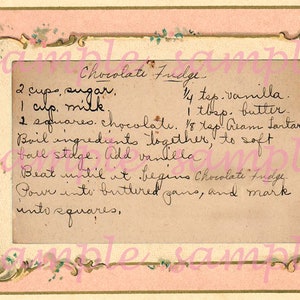 Chocolate Fudge
2 cups, sugar. ¼ tsp. vanilla.
1 cup, milk. 1 tbsp. butter.
2 squares. chocolate. ⅛ tsp Cream Tartar
Boil ingredients together, to soft
ball stage. Add vanilla
Beat until it begins Chocolate Fudge
Pour into buttered pans, and mark
into squares.
sample sample
sample sample
sample sample